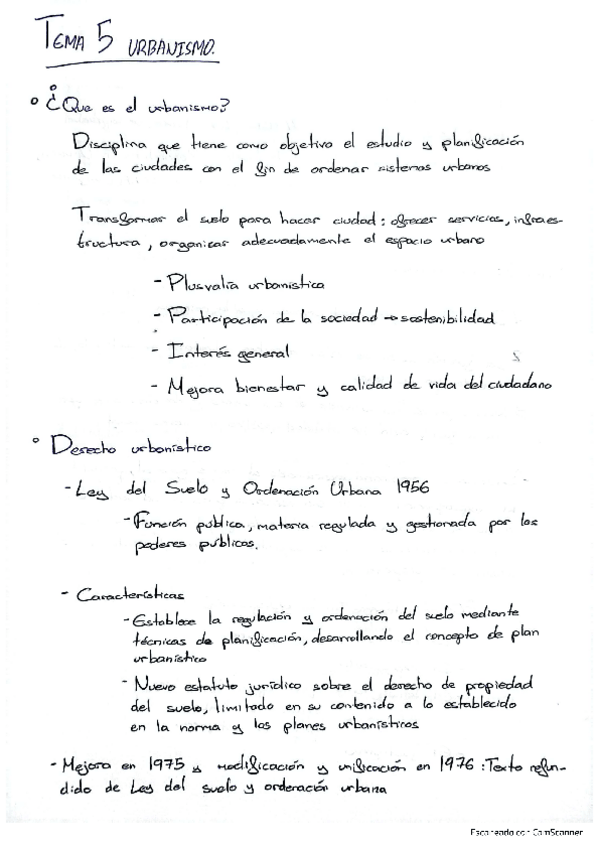 TEMA 5 URBANISMO.
¿Que es el urbanismo?
Disciplina que tiene como objetivo el estudio y planificación
de las ciudades con el fin de ordenar sistemas urbanos
Transformar el suelo para hacer ciudad: ofrecer servicios, infraes-
tructura, organizar adecuadamente el espacio urbano
- Plusvalía urbanistica
- Participación de la sociedad → sostenibilidad
- Interés general
- Mejora bienestar y calidad de vida del ciudadano
Derecho urbanístico
- Ley del Suelo y Ordenación Urbana 1956
- Función publica, materia regulada y gestionada por los
poderes publicos.
- Características
- Establece la regulación y ordenación del suelo mediante
técnicas de planificación, desarrollando el concepto de plan
urbanístico
- Nuevo estatuto jurídico sobre el derecho de propiedad
del suelo, limitado en su contenido a lo establecido
en la norma y los planes urbanísticos
- Mejora en 1975 y modificación y unificación en 1976: Texto refun-
dido de Ley del suelo y ordenación urbana
Escaneado con CamScanner